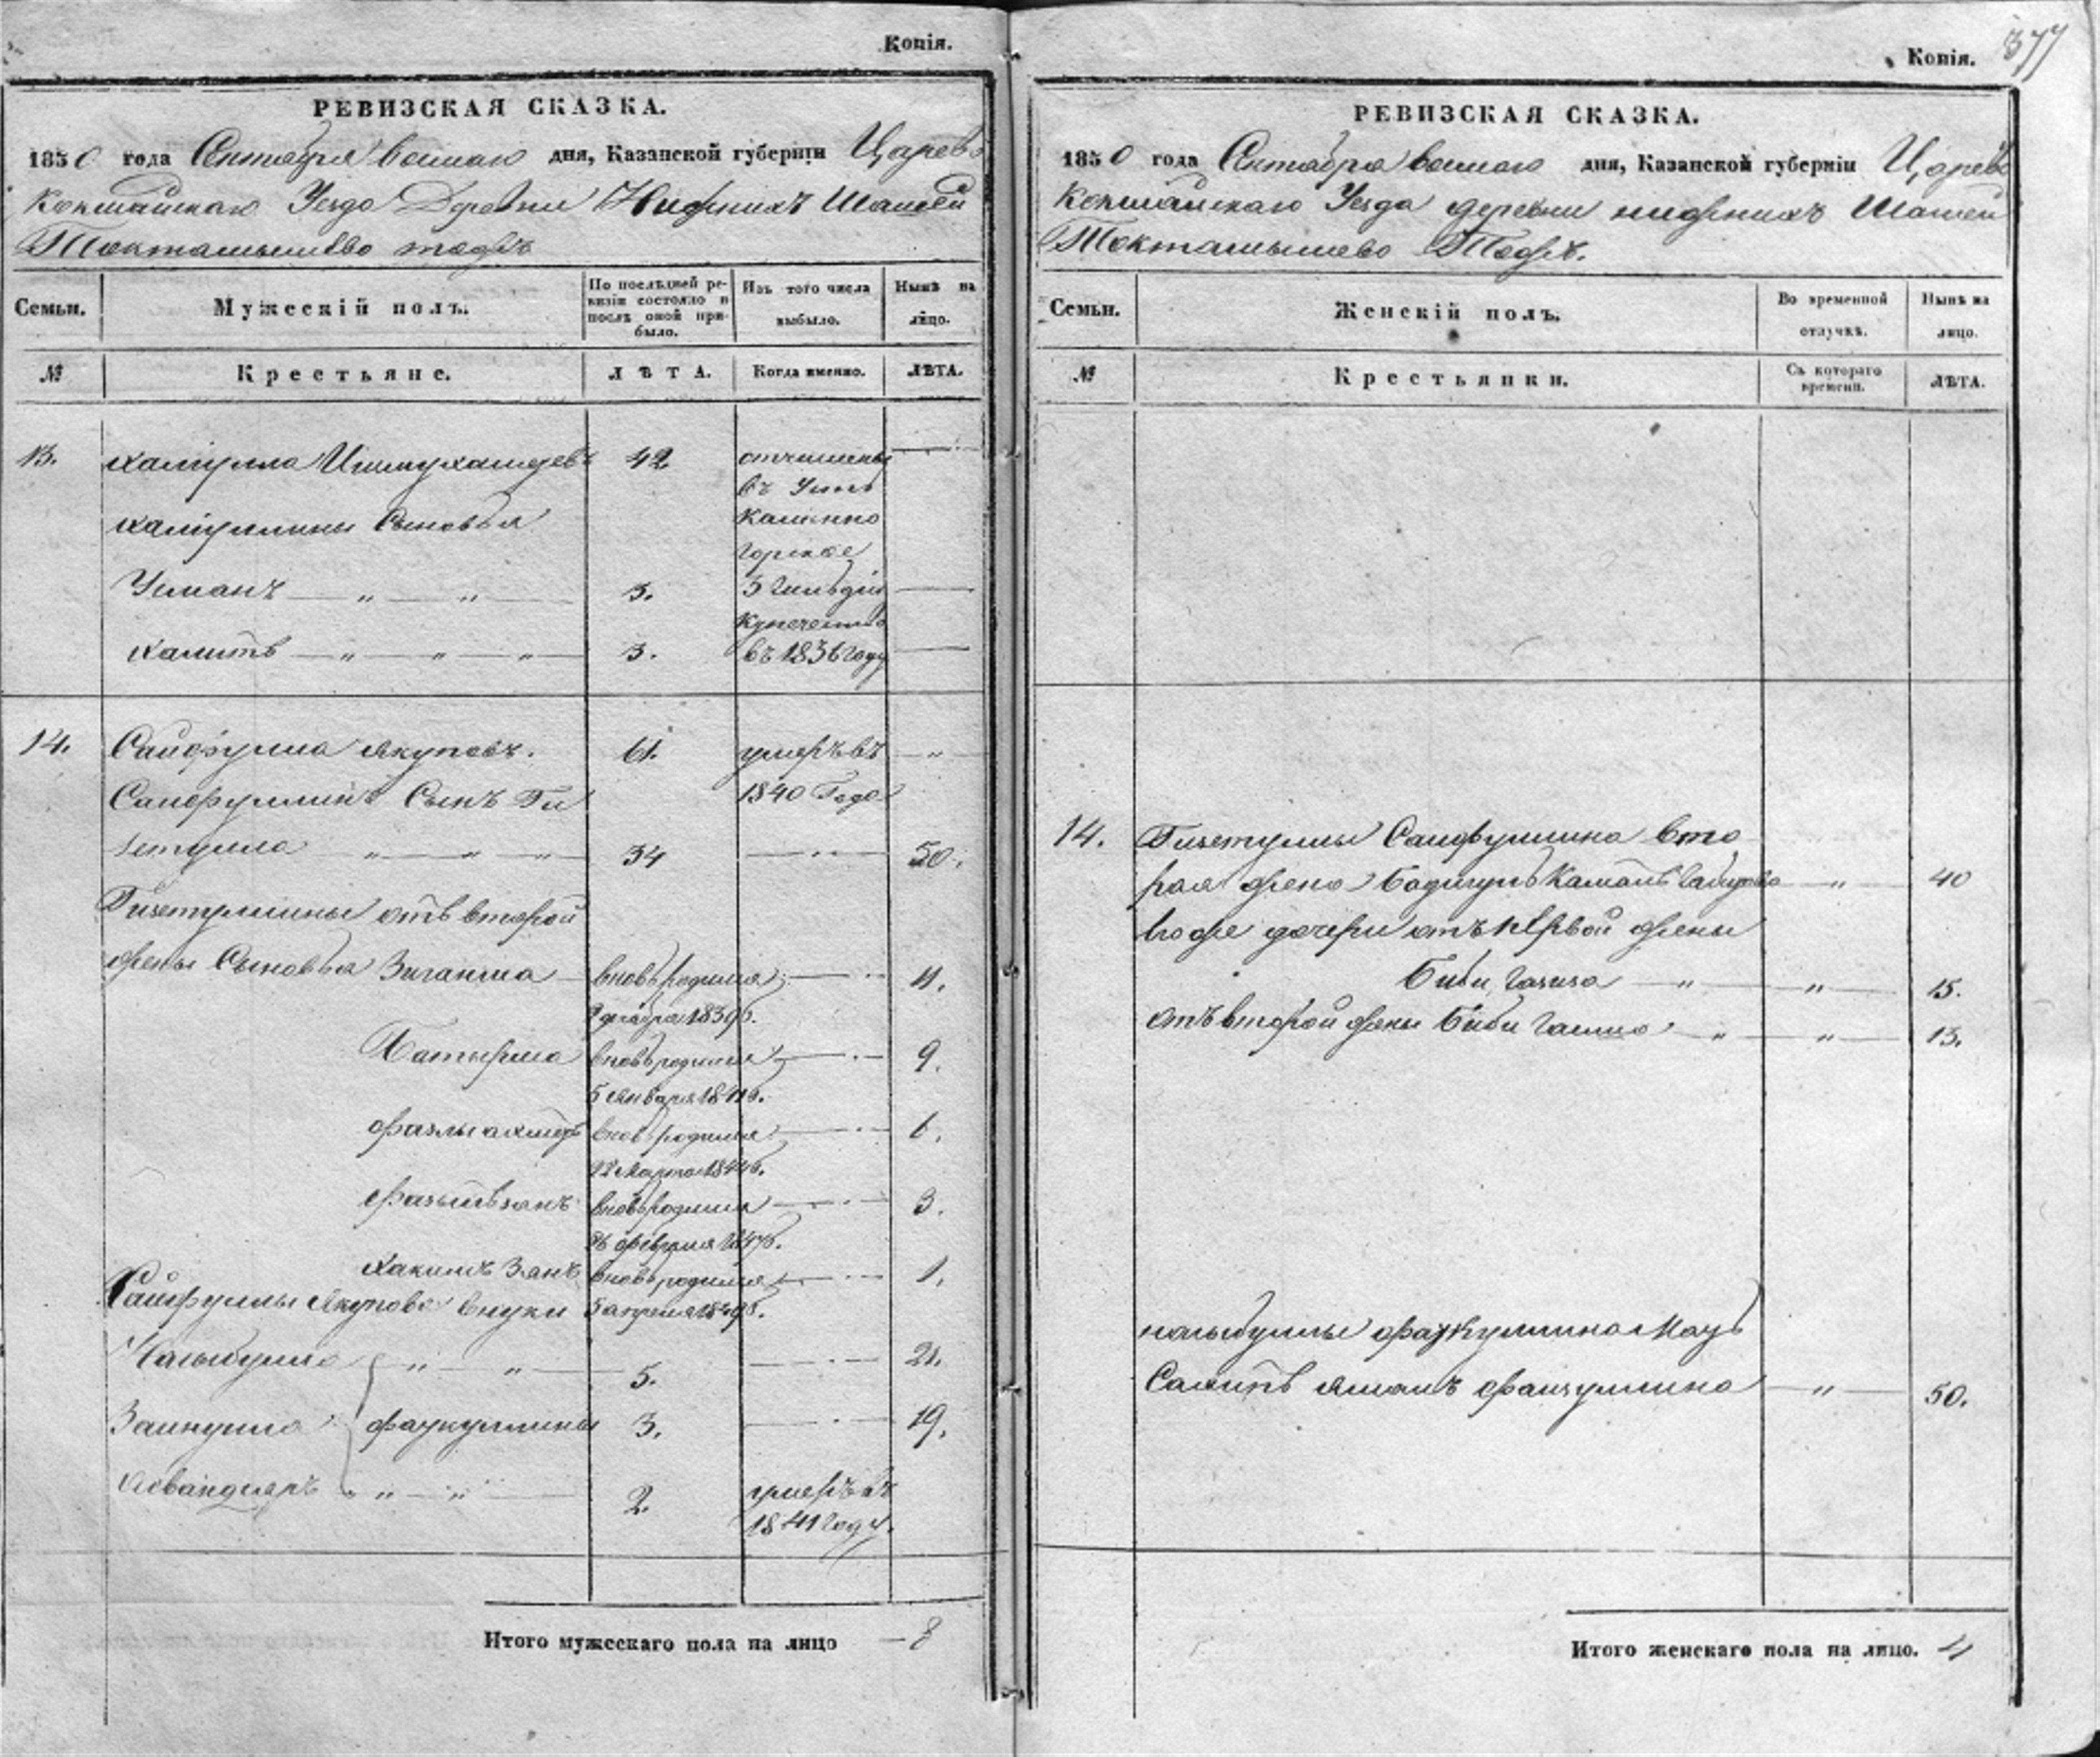 Копія.
РЕВИЗСКАЯ СКАЗКА.
1850 года Сентября дня, Казанской губерніи Царево
Кокшайскаго Уезда Деревни Нижнихъ Шашей
Токтамышево тожъ
Семьи.
Мужескій полъ.
По послѣдней ре-
визіи состояло и
послѣ оной при-
было.
Изъ того числа
выбыло.
Нынѣ на
лицо.
№
Крестьяне.
ЛѢТА.
Когда именно.
ЛѢТА.
13. Халиулла Ишмухамедевъ 42 отчислены
въ Усть
Халиуллины Сыновья Каменно
горское
Усманъ — " — " — 5. 3 Гильдіи
купечество
Халитъ — " — " — " — 3. въ 1836 году
14. Сайфулла Якуповъ. 61. умеръ въ "
Сайфуллинъ Сынъ Ги 1840 Года
зетулла " — " — " — 34 50.
Гизетуллины отъ второй
жены Сыновья Зиганша вновь родился 11.
9 декабря 1839г.
Батырша вновь родился 9.
5 Января 1841г.
Фазлыахметъ вновь родился 6.
Марта 1844г.
Фазылзянъ вновь родился 3.
февраля 1847г.
Хакимъ Зянъ вновь родился 1.
Сайфуллы Якупова внуки 5 апреля 1849г.
" — " — 5. 21.
Зайнулла Фаткуллины 3. 19.
Асвандияръ " — " — 2. умеръ въ
1841 году.
Итого мужескаго пола на лицо — 8
377
Копія.
РЕВИЗСКАЯ СКАЗКА.
1850 года Сентября дня, Казанской губерніи Царево
Кокшайскаго Уезда деревни нижнихъ Шашей
Токтамышево Тожъ.
Семьи.
Женскій полъ.
Во временной
отлучкѣ.
Нынѣ на
лицо.
№
Крестьянки.
Съ котораго
времени.
ЛѢТА.
14. Гизетуллы Сайфуллина вто
рая жена Бадигуль Камалъ " 40
Его же дочери отъ первой жены
Биби Газиза — " — " — 15.
отъ второй жены Биби " — " — 13.
Фаткуллина Мать
50.
Итого женскаго пола на лицо. 4